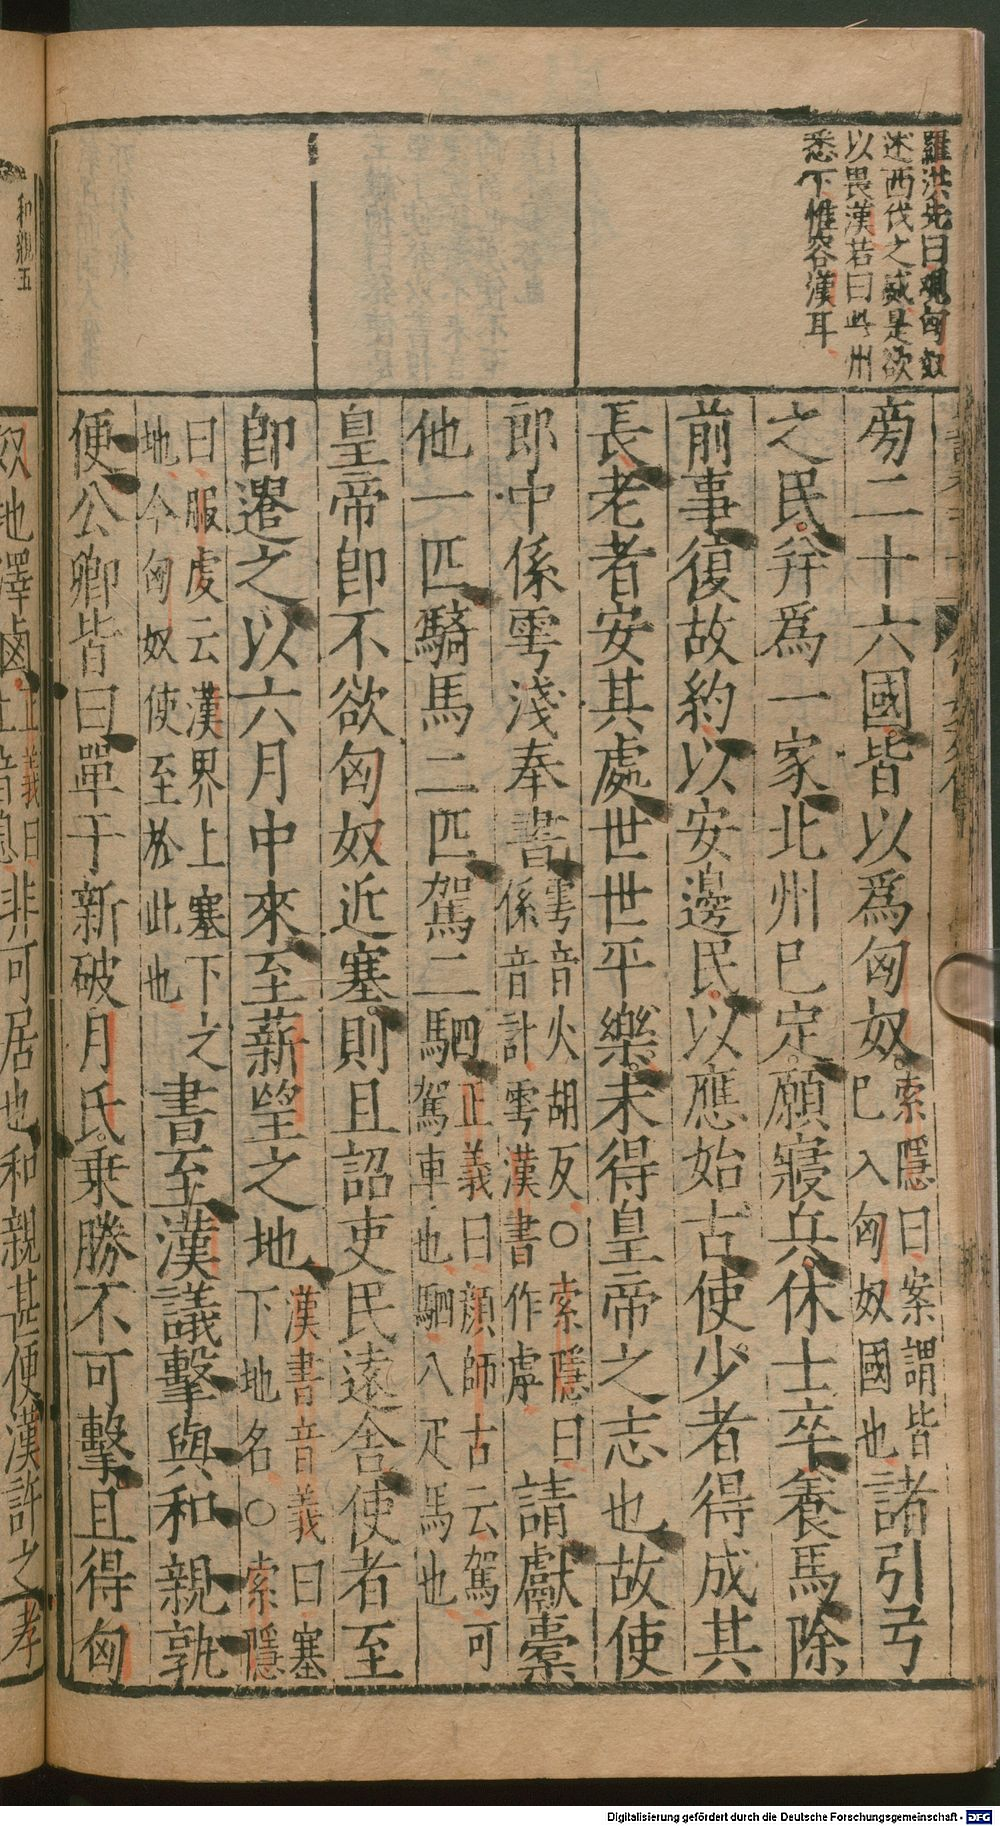 羅洪先曰觀匈奴
述西伐之威是欲
以畏漢若曰此州
悉下惟容漢耳
旁二十六國皆以爲匈奴索隱曰案謂皆
已入匈奴國也諸引弓
之民并爲一家北州已定願寢兵休士卒養馬除
前事復故約以安邊民以應始古使少者得成其
長老者安其處世世平樂未得皇帝之志也故使
郎中係雩淺奉書雩音火胡反○索隱曰
係音計雩漢書作虖請獻橐
他一匹騎馬二匹駕二駟正義曰顏師古云駕可
駕車也駟八疋馬也
皇帝卽不欲匈奴近塞則且詔吏民遠舍使者至
卽遣之以六月中來至薪望之地漢書音義曰塞
下地名○索隱
曰服虔云漢界上塞下之
地今匈奴使至於此也書至漢議擊與和親孰
便公卿皆曰單于新破月氏乗勝不可擊且得匈
和親五
奴地澤鹵
非可居也和親甚便漢許之孝
Digitalisierung gefördert durch die Deutsche Forschungsgemeinschaft - DFG